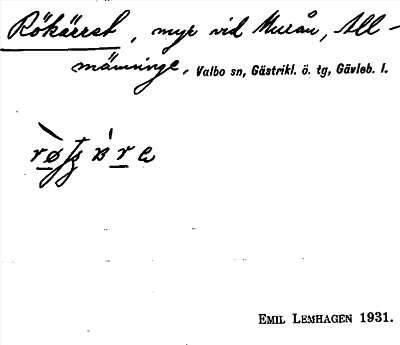 Rökärret, myr vid Murån, All-
männinge. Valbo sn, Gästrikl. ö. tg, Gävleb. l.
EMIL LEMHAGEN 1931.